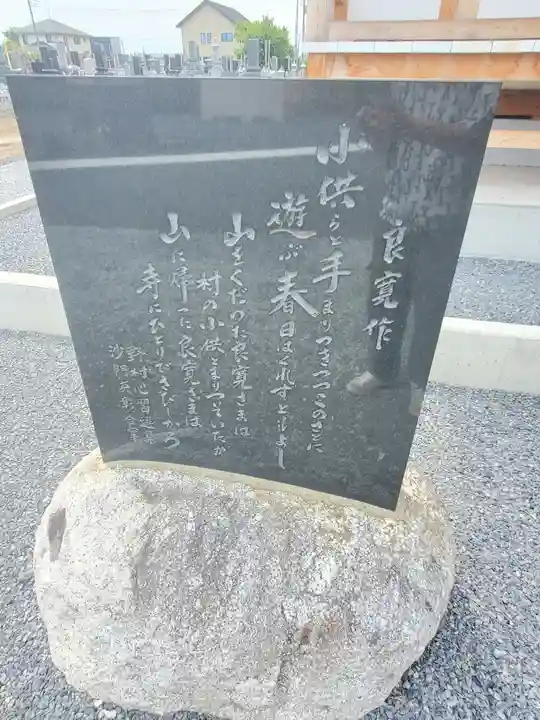 良寛作
小供らと手まりつきつつこのさとに
遊ぶ春日はくれずともよし
山をくだつた良寛さまは
村の小供とまりつそいたか
山に帰つた良寛さまは
寺にひとりでさびしかろ